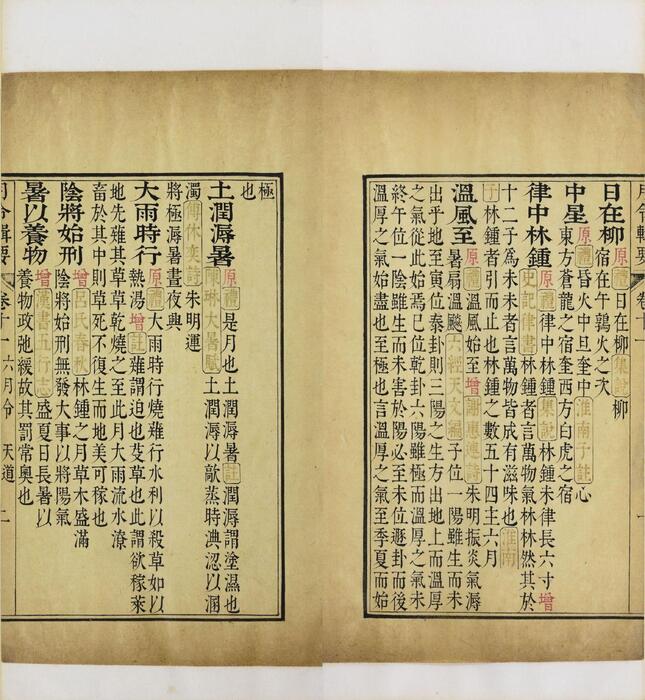 月令輯要 卷十一 一
日在柳
原禮日在柳集說柳
宿在午鶉火之次
中星
原禮昏火中旦奎中淮南子註心
東方蒼龍之宿奎西方白虎之宿
律中林鍾
原禮律中林鍾集說林鍾未律長六寸增
史記律書林鍾者言萬物氣林林然其於
十二子為未未者言萬物皆成有滋味也淮南
子林鍾者引而止也林鍾之數五十四主六月
溫風至
原禮溫風始至增謝惠連詩朱明振炎氣溽
暑扇溫飈六經天文編子位一陽雖生而未
出乎地至寅位泰卦則三陽之生方出地上而溫厚
之氣從此始焉巳位乾卦六陽雖極而溫厚之氣未
終午位一陰雖生而未害於陽必至未位遯卦而後
溫厚之氣始盡也至極也言溫厚之氣至季夏而始
極
也
土潤溽暑
原禮是月也土潤溽暑註潤溽謂塗濕也
陳琳大暑賦土潤溽以歊蒸時淟涊以溷
濁傅休奕詩朱明運
將極溽暑晝夜興
大雨時行
原禮大雨時行燒薙行水利以殺草如以
熱湯增註薙謂迫也芟草也此謂欲稼萊
地先薙其草草乾燒之至此月大雨流水潦
畜於其中則草死不復生而地美可稼也
陰將始刑
增呂氏春秋林鍾之月草木盛滿
陰將始刑無發大事以將陽氣
暑以養物
增漢書五行志盛夏日長暑以
養物政弛緩故其罰常奧也
月令輯要 卷十一 六月令 天道 二